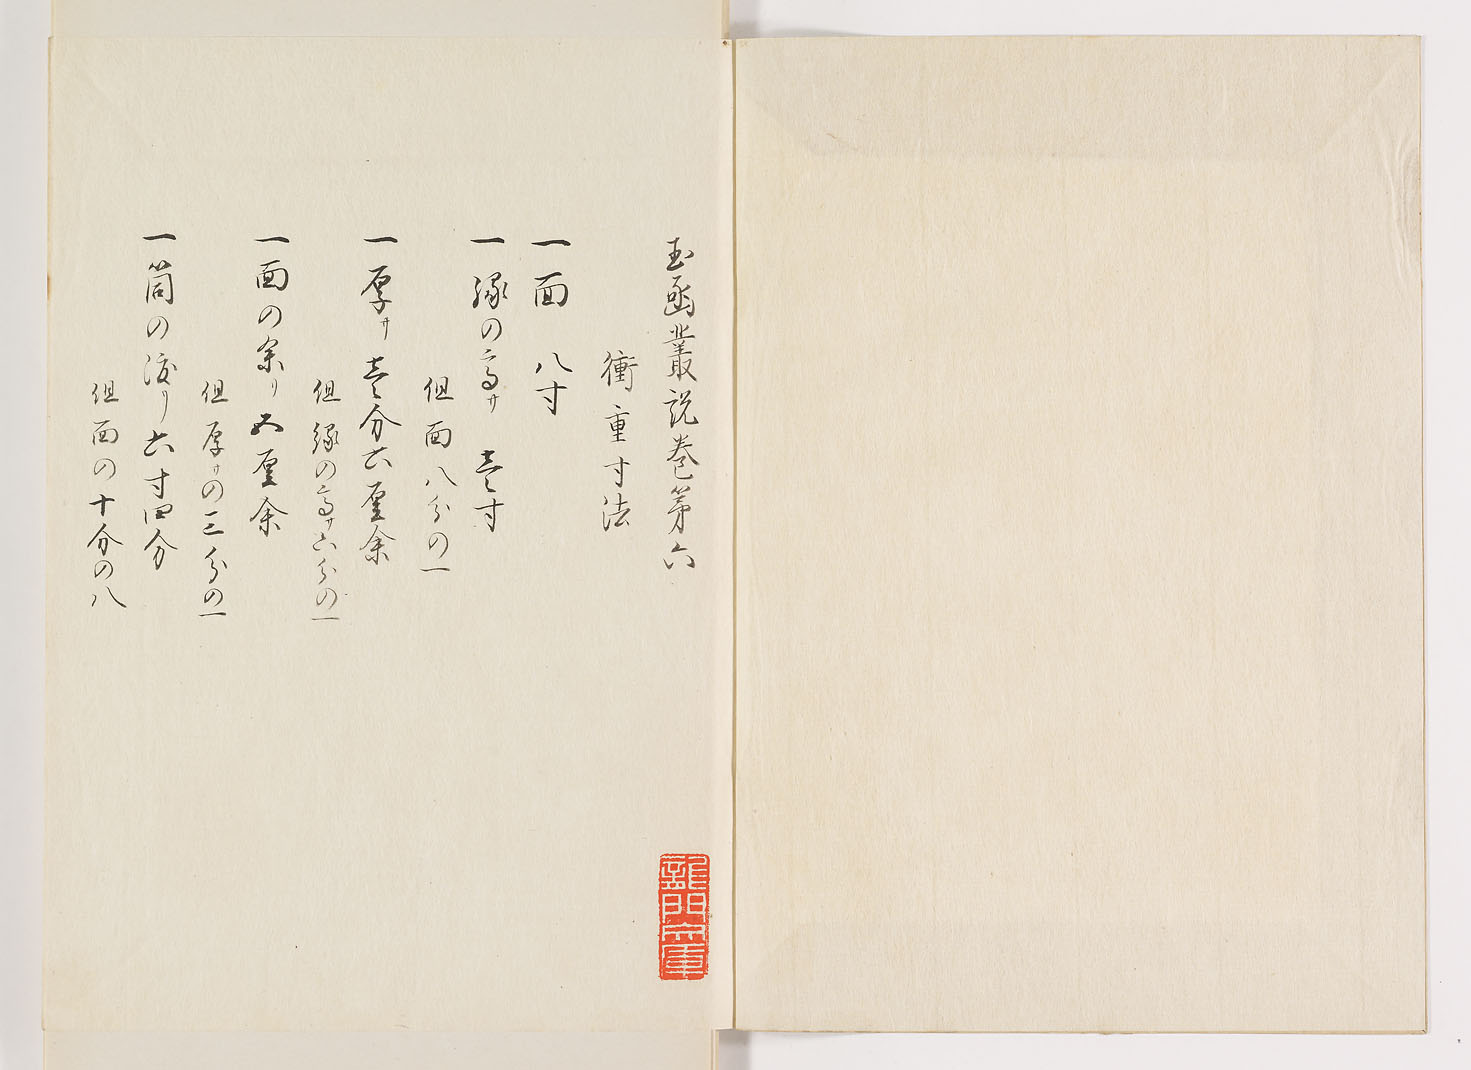 玉函叢説巻第六
衝重寸法
一面 八寸
一縁の高サ 壱寸
但面八分の一
一厚サ壱分六厘余
但縁の高サ六分の一
一面の余リ五厘余
但厚サの三分の一
一筒の渡リ六寸四分
但面の十分の八
龍門文庫